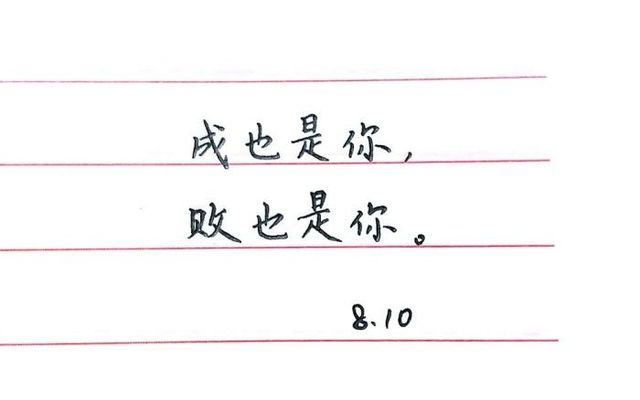 成也是你，
败也是你。
8.10